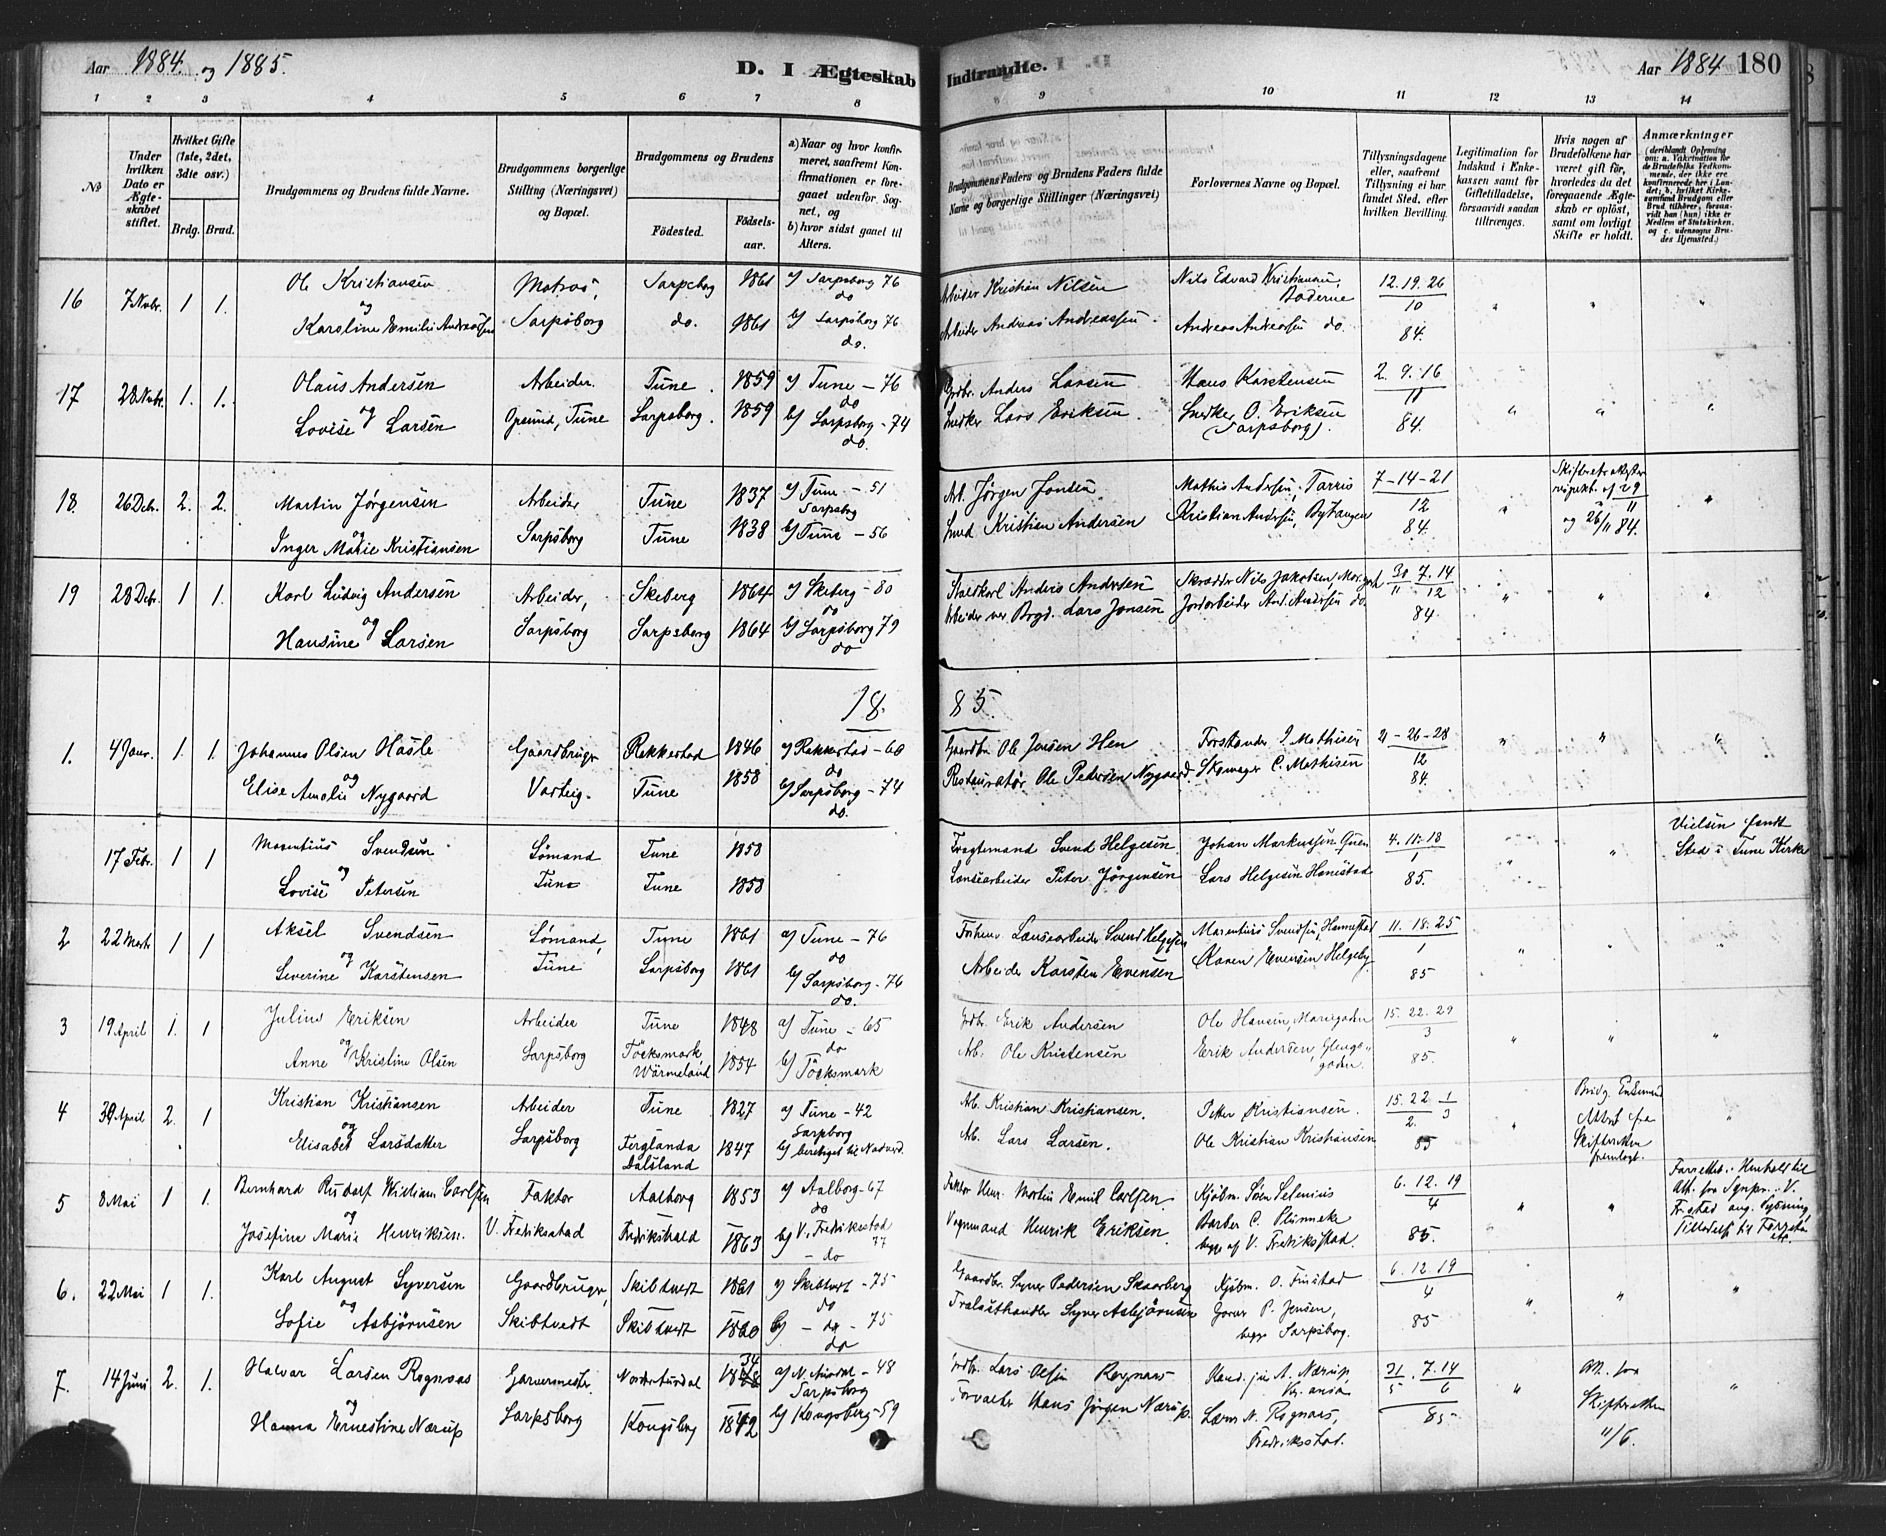 Aar 1884. og 1885.
D. I Ægteskab Indtraadte.
Aar 1884 180
1 2 3 4 5 6 7 8 9 10 11 12 13 14
No
Under hvilken Dato er Ægteskabet stiftet.
Hvilket Gifte (1ste, 2det, 3die osv.)
Brdg. Brud.
Brudgommens og Brudens fulde Navne.
Brudgommens borgerlige Stilling (Næringsvei) og Bopæl.
Brudgommens og Brudens
Födested.
Födselsaar.
a) Naar og hvor konfirmeret, saafremt Konfirmationen er foregaaet udenfor Sognet, og
b) hvor sidst gaaet til Alters.
Brudgommens Faders og Brudens Faders fulde Navne og borgerlige Stillinger (Næringsvei)
Forlovernes Navne og Bopæl.
Tillysningsdagene eller, saafremt Tillysning ei har fundet Sted, efter hvilken Bevilling.
Legitimation for Indskud i Enkekassen samt for Giftetilladelse, forsaavidt saadan tiltrænges.
Hvis nogen af Brudefolkene har været gift för, hvorledes da det foregaaende Ægteskab er oplöst, samt om lovligt Skifte er holdt.
Anmærkninger
16 7 Nvbr. 1 1. Ole Kristiansen Matros, Sarpsborg 1861 a/ Sarpsborg 76 do Arbeider Kristian Nilsen Nils Edvard Kristiansen, 12. 19. 26
og Karoline Emilie Andreassen Sarpsborg do. 1861 b/ Sarpsborg 76 do. Arbeider Andreas Andreassen Andreas Andreassen do. 10 84.
17 28 Nvbr. 1. 1. Olaus Andersen Arbeider. Tune. 1859 a/ Tune - 76 do Grdbr. Anders Larsen Hans Karstensen 2. 9. 16
og Lovise Larsen Opsund, Tune Sarpsborg. 1859 b/ Sarpsborg - 74 do. Snedker Lars Eriksen. Snedker O. Eriksen (Sarpsborg). 11 84.
18. 26 Debr. 2. 2. Martin Jørgensen Arbeider Tune 1837 a/ Tune - 51 Sarpsborg Arb. Jørgen Mathis Andersen, 7-14-21
og Inger Marie Kristiansen Sarpsborg Tune 1838 b/ Tune - 56 Smed Kristian Andersen Kristian Andersen, 12 84. og 26/11 84.
19 28 Debr. 1 1. Karl Ludvig Andersen Arbeider, Skeberg 1864 a/ Skeberg - 80 do Staldkarl Anders Andersen Skrædder Nils Jakobsen, 30. 7. 14
og Hansine Larsen Sarpsborg Sarpsborg 1864 b/ Sarpsborg 79 do Lars Jonsen Jordarbeider And. Andersen do. 11 12 84.
18 85.
1. 4 Janr. 1. 1. Johannes Olsen Hasle Gaardbruger Rekkestad 1846 a/ Rekkestad - 60 do Gaardbr. Ole Jensen Hen Forstander I. Mathisen 21-26-28
og Elise Amalie Nygaard Varteig. Tune 1858 b/ Sarpsborg - 74 do. Restauratør Ole Pedersen Nygaard. Skomager C. Mathisen 12 84.
17 Febr. 1 1 Marentius Svendsen Sømand Tune 1858 Fragtemand Svend Helgesen. Johan Markussen 4. 11. 18 Vielsen fandt
og Lovise Petersen Tune Tune 1858 Lansearbeider Peter Jørgensen Lars Helgesen Hanestad 1 85. Sted i Tune Kirke
2 22 Marts 1 1 Aksel Svendsen Sømand, Tune 1861 a/ Tune - 76 do Lansearbeider Svend Helgesen Marentius Svendsen, Hannestad 11. 18. 25
og Severine Karstensen Tune Sarpsborg 1861 b/ Sarpsborg - 76 do. Arbeider Karsten Evensen Karen Evensen Helgeby 1 85
3 19 April 1. 1 Julius Eriksen Arbeider Tune 1848 a/ Tune - 65 do Grdbr. Erik Andersen Ole Hansen, Mariegaden 15. 22. 29
og Anne Kristine Olsen Sarpsborg Töcksmark, Wärmeland 1854 b/ Töcksmark Arb. Ole Kristensen Erik Andersen, Glengsgaden. 3 85.
4 30 April 2. 1 Kristian Kristiansen Arbeider Tune 1827 a/ Tune - 42 Sarpsborg Arb. Kristian Kristiansen. Peter Kristiansen. 15. 22 1 Brudg. Enkemand
og Elisabet Larsdatter Sarpsborg Dalsland 1847 b/ beretiget til Nadverd. Arb. Lars Larsen. Ole Kristian Kristiansen 2. 3 85 Attest fra Skifteretten fremlagt.
5 8 Mai 1 1. Bernhard Rudolf William Carlsen Faktor Aalborg 1853 a/ Aalborg - 67 do Faktor Martin Emil Carlsen. Kjøbm. Sören Selenius 6. 12. 19
og Josefine Marie Henriksen. V. Fredriksstad Fredrikshald 1863 b/ V. Fredrikstad 77 - do Vognmand Henrik Eriksen. Barber C. Plünneke begge af V. Fredriksstad. 4 85.
6. 22 Mai 1 1. Karl August Syversen Gaardbruger, Skibtvedt 1861 a/ Skibtvet - 75 do Gaardbr. Syver Pedersen Skaarberg Kjøbm. O. Finstad 6. 12 19
og Sofie Asbjörnsen Skibtvedt Skibtvedt 1860 b/ - do - 75 do Trælasthandler Syver Asbjörnsen P. Jensen, begge Sarpsborg. 4 85
7. 14 Juni 2. 1. Halvar Larsen Rognaas Garvermester, 1834 48 Sarpsborg Grdbr. Lars Olsen Rognaas Kand. jur. A. Nærup, 31. 7. 14 Att. fra
og Hanna Ernestine Nærup Sarpsborg Kongsberg 1842 b/ Kongsberg - 59 Forvalter Hans Jörgen Nærup. N. Rognaas, Fredriksstad. 5 6 85 Skifteretten 11/6.